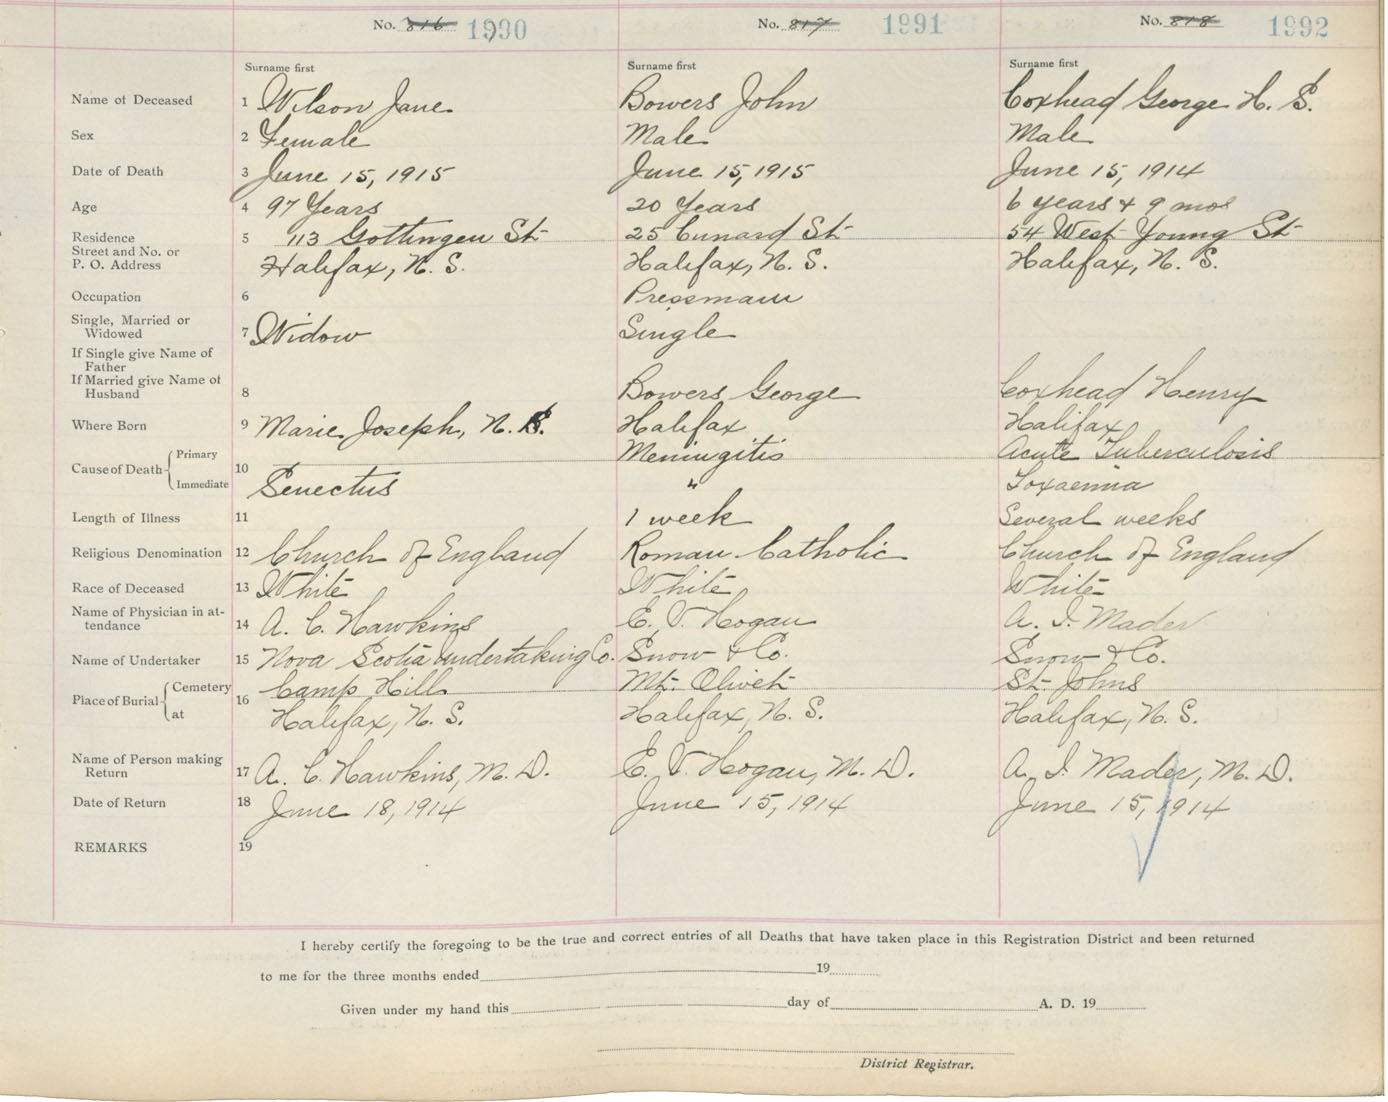 No. 816 1990 No. 817 1991 No. 818 1992
Surname first Surname first Surname first
Name of Deceased 1 Wilson Jane Bowers John Coxhead George H. S.
Sex 2 Female Male Male
Date of Death 3 June 15, 1915 June 15, 1915 June 15, 1914
Age 4 97 Years 20 Years 6 years & 9 mos
Residence 5 113 Gottingen St 25 Cunard St 54 West Young St
Street and No. or
P. O. Address Halifax, N. S. Halifax, N. S. Halifax, N. S.
Occupation 6 Pressman
Single, Married or
Widowed 7 Widow Single
If Single give Name of
Father
If Married give Name of
Husband 8 Bowers George Coxhead Henry
Where Born 9 Marie Joseph, N. S. Halifax Halifax
Cause of Death Primary 10 Meningitis Acute Tuberculosis
Immediate Senectus " Toxaemia
Length of Illness 11 1 week Several weeks
Religious Denomination 12 Church of England Roman Catholic Church of England
Race of Deceased 13 White White White
Name of Physician in at-
tendance 14 A. C. Hawkins E. V. Hogan A. I. Mader
Name of Undertaker 15 Nova Scotia Undertaking Co. Snow & Co. Snow & Co.
Place of Burial Cemetery 16 Camp Hill Mt. Olivet St. Johns
at Halifax, N. S. Halifax, N. S. Halifax, N. S.
Name of Person making
Return 17 A. C. Hawkins, M. D. E. V. Hogan, M. D. A. I. Mader, M. D.
Date of Return 18 June 18, 1914 June 15, 1914 June 15, 1914
REMARKS 19
I hereby certify the foregoing to be the true and correct entries of all Deaths that have taken place in this Registration District and been returned
to me for the three months ended 19
Given under my hand this day of A. D. 19
District Registrar.